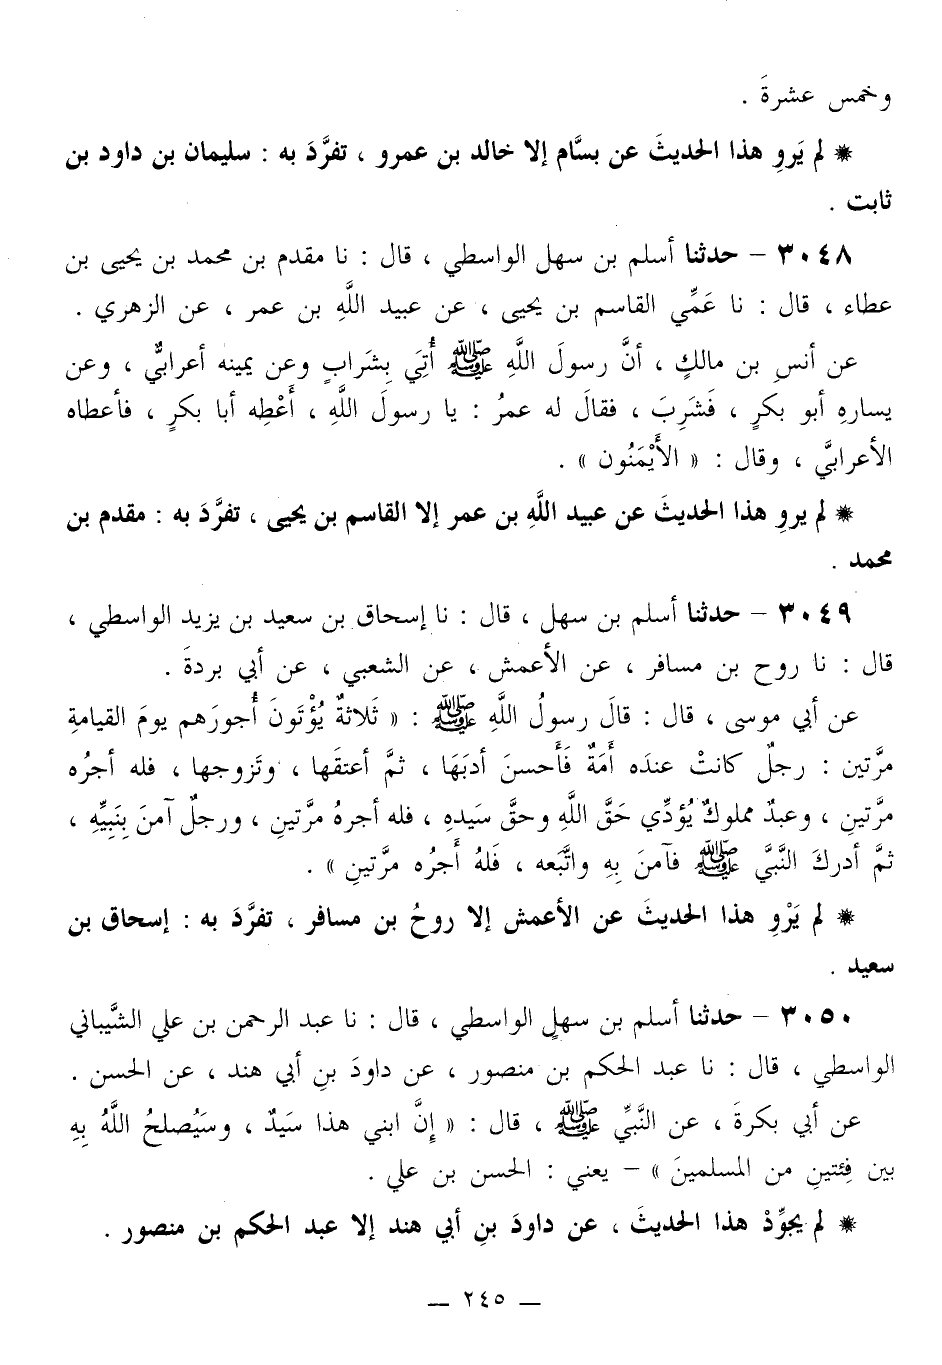 وخمس عشرةَ .
* لم يَروِ هذا الحديثَ عن بسَّام إلا خالد بن عمرو ، تفرَّدَ به : سليمان بن داود بن
ثابت .
٣٠٤٨ – حدثنا أسلم بن سهل الواسطي ، قال : نا مقدم بن محمد بن يحيى بن
عطاء ، قال : نا عَمِّي القاسم بن يحيى ، عن عبيد اللَّهِ بن عمر ، عن الزهري .
عن أنسِ بن مالكٍ ، أنَّ رسولَ اللَّهِ ﷺ أُتِيَ بِشَرابٍ وعن يمينه أعرابيٌّ ، وعن
يسارهِ أبو بكرٍ ، فَشَرِبَ ، فقالَ له عمرُ : يا رسولَ اللَّهِ ، أَعْطِه أبا بكرٍ ، فأعطاه
الأعرابيَّ ، وقال : « الأَيْمَنُون » .
* لم يروِ هذا الحديثَ عن عبيد اللَّهِ بن عمر إلا القاسم بن يحيى ، تفرَّدَ به : مقدم بن
محمد .
٣٠٤٩ – حدثنا أسلم بن سهل ، قال : نا إسحاق بن سعيد بن يزيد الواسطي ،
قال : نا روح بن مسافر ، عن الأعمش ، عن الشعبي ، عن أبي بردةَ .
عن أبي موسى ، قال : قالَ رسولُ اللَّهِ ﷺ : « ثَلاثةٌ يُؤْتَونَ أُجورَهم يومَ القيامةِ
مرَّتين : رجلٌ كانتْ عندَه أَمَةٌ فَأَحسنَ أدبَهَا ، ثمَّ أعتقَها ، وتَزوجها ، فله أجرُه
مرَّتينِ ، وعبدٌ مملوكٌ يُؤدِّي حَقَّ اللَّهِ وحقَّ سَيدهِ ، فله أجرهُ مرَّتينِ ، ورجلٌ آمنَ بِنَبِيِّهِ ،
ثمَّ أدركَ النَّبيَّ ﷺ فآمنَ بِهِ واتَّبَعه ، فَلهُ أَجرُه مرَّتينِ » .
* لم يَرْوِ هذا الحديثَ عن الأعمش إلا روحُ بن مسافر ، تفرَّدَ به : إسحاق بن
سعيد .
٣٠٥٠ – حدثنا أسلم بن سهلٍ الواسطي ، قال : نا عبد الرحمن بن علي الشَّيباني
الواسطي ، قال : نا عبد الحكم بن منصور ، عن داودَ بنِ أبي هند ، عن الحسن .
عن أبي بكرةَ ، عن النَّبيِّ ﷺ ، قال : « إِنَّ ابني هذا سَيدٌ ، وسَيُصلحُ اللَّهُ بِهِ
بين فِئتينِ من المسلمينَ » – يعني : الحسن بن علي .
* لم يجوِّدْ هذا الحديثَ ، عن داودَ بنِ أبي هند إلا عبد الحكم بن منصور .
– ٢٤٥ –